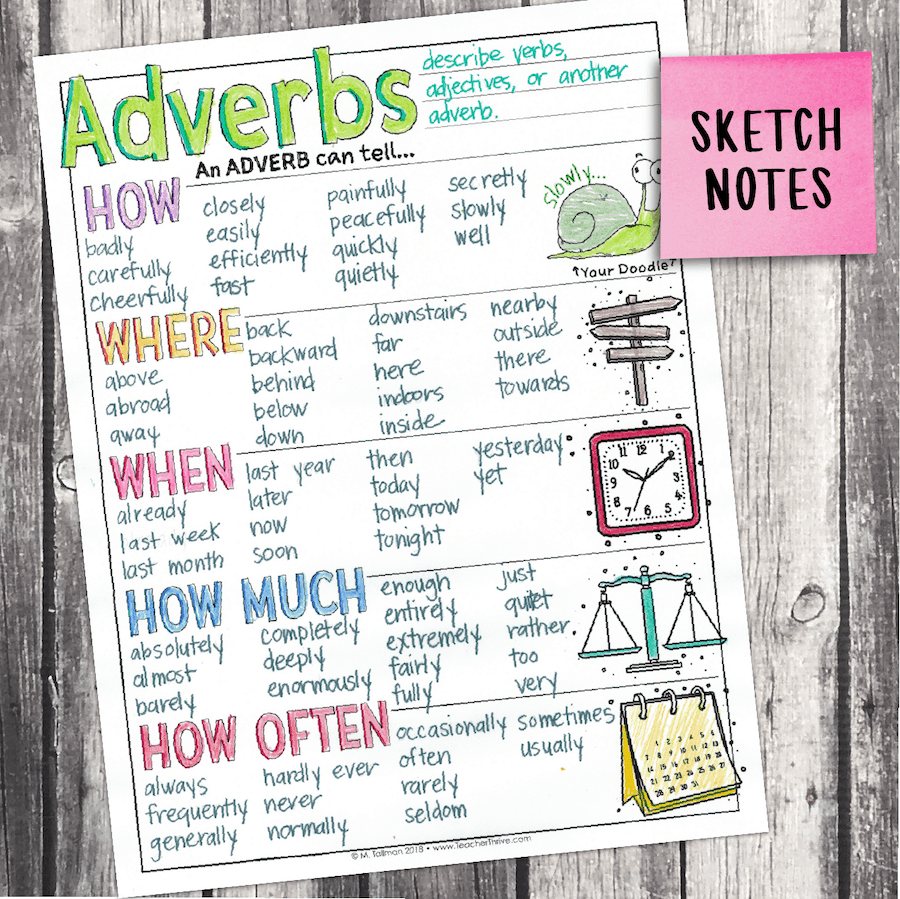 Adverbs
describe verbs,
adjectives, or another
adverb.
SKETCH
NOTES
An ADVERB can tell...
HOW
badly
carefully
cheerfully
closely
easily
efficiently
fast
painfully
peacefully
quickly
quietly
secretly
slowly
well
slowly...
↑Your Doodle↑
WHERE
above
abroad
away
back
backward
behind
below
down
downstairs
far
here
indoors
inside
nearby
outside
there
towards
WHEN
already
last week
last month
last year
later
now
soon
then
today
tomorrow
tonight
yesterday
yet
12
11 1
10 2
9 3
8 4
7 5
6
HOW MUCH
absolutely
almost
barely
completely
deeply
enormously
enough
entirely
extremely
fairly
fully
just
quiet
rather
too
very
HOW OFTEN
always
frequently
generally
hardly ever
never
normally
occasionally
often
rarely
seldom
sometimes
usually
© M. Tallman 2018 • www.TeacherThrive.com